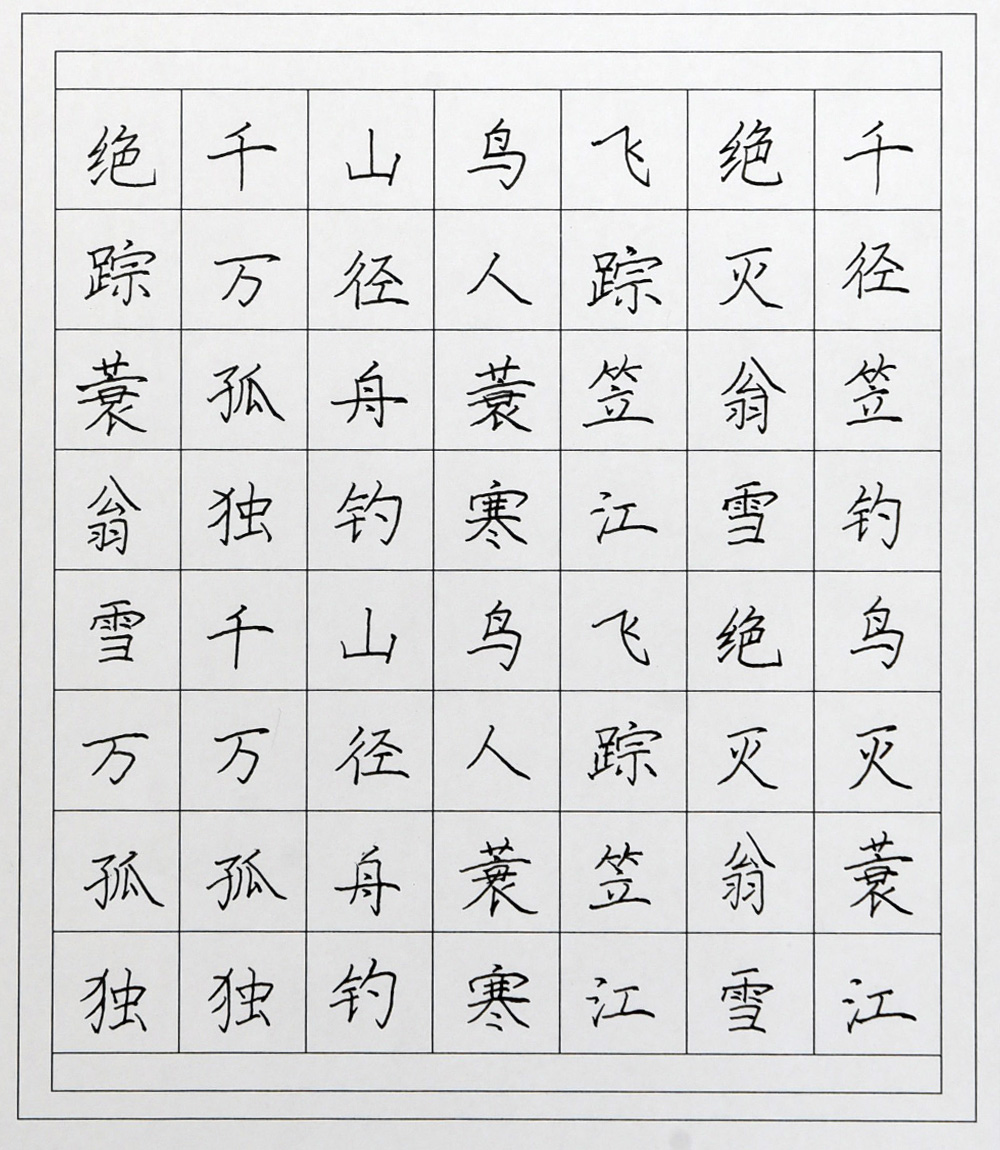 绝千山鸟飞绝千
踪万径人踪灭径
蓑孤舟蓑笠翁笠
翁独钓寒江雪钓
雪千山鸟飞绝鸟
万万径人踪灭灭
孤孤舟蓑笠翁蓑
独独钓寒江雪江